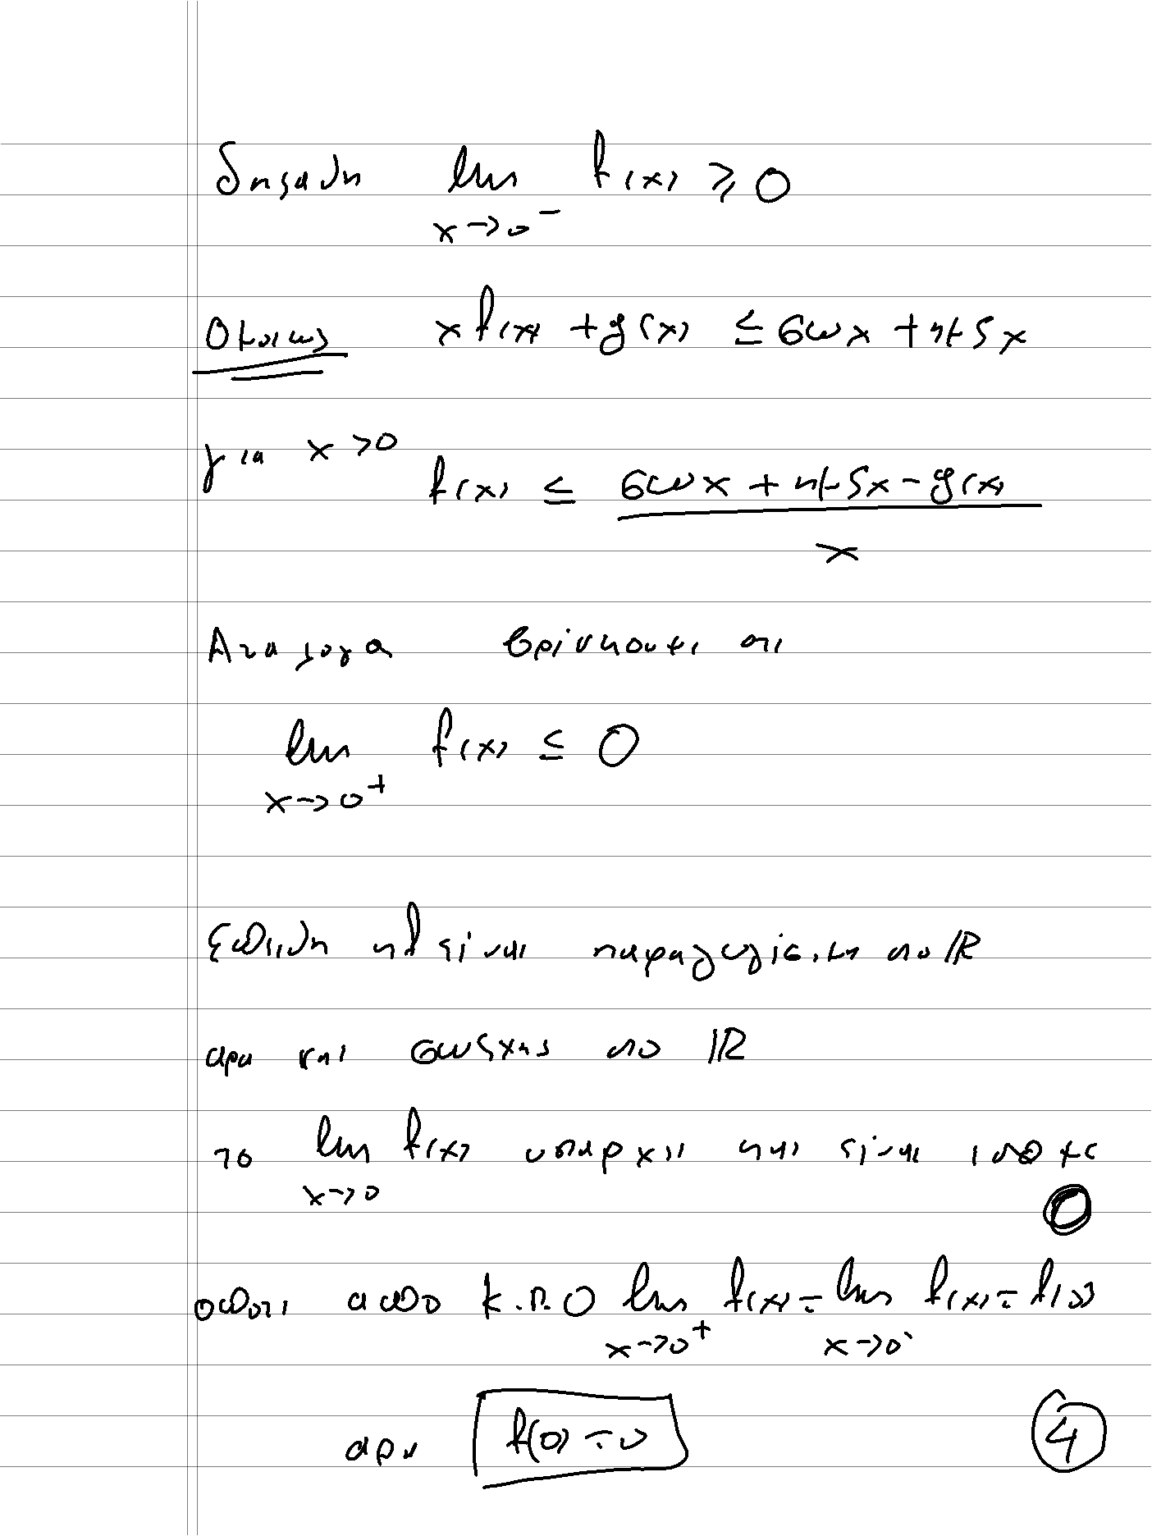 δηλαδη lim f(x) ≥ 0
x→0⁻
Ομοιως x f(x) + g(x) ≤ συν x + ημ5x
για x > 0
f(x) ≤ συν x + ημ5x - g(x)
x
Αναλογα βρίσκουμε οτι
lim f(x) ≤ 0
x→0⁺
Επειδη η f είναι παραγωγίσιμη στο ℝ
αρα και συνεχης στο ℝ
το lim f(x) υπαρχει και είναι ισο με
x→0
0
οποτε απο Κ.Π.Ο lim f(x) = lim f(x) = f(0)
x→0⁺ x→0⁻
αρα f(0) = 0
4